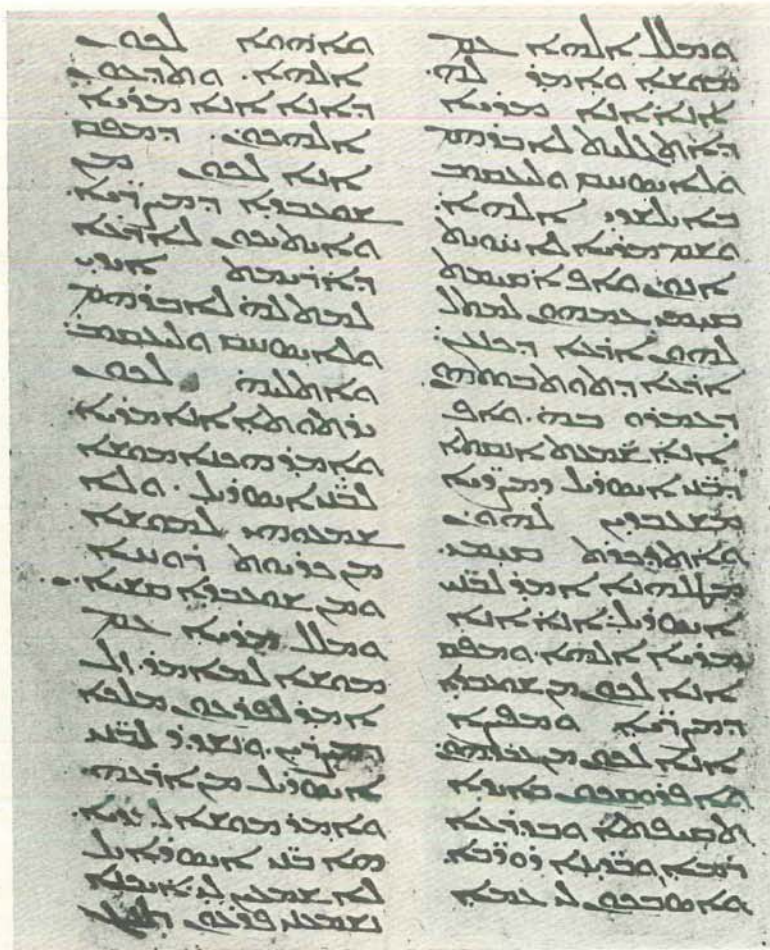 ܘܡܠܠ ܐܠܗܐ ܥܡ
ܡܘܫܐ ܘܐܡܪ ܠܗ.
ܐܢܐ ܐܢܐ ܡܪܝܐ
ܕܐܬܓܠܝܬ ܠܐܒܪܗܡ
ܘܠܐܝܣܚܩ ܘܠܝܥܩܘܒ
ܒܐܝܠܫܕܝ ܐܠܗܐ.
ܘܫܡ ܡܪܝܐ ܠܐ ܚܘܝܬ
ܐܢܘܢ ܘܐܦ ܐܩܝܡܬ
ܩܝܡܝ ܥܡܗܘܢ ܠܡܬܠ
ܠܗܘܢ ܐܪܥܐ ܕܟܢܥܢ.
ܐܪܥܐ ܕܬܘܬܒܘܬܗܘܢ
ܕܥܡܪܘ ܒܗ. ܘܐܦ
ܐܢܐ ܫܡܥܬ ܐܢܩܬܐ
ܕܒ̈ܢܝ ܐܝܣܪܝܠ ܕܡܨܪ̈ܝܐ
ܡܫܥܒܕܝܢ ܠܗܘܢ
ܘܐܬܕܟܪܬ ܩܝܡܝ.
ܡܛܠܗܢܐ ܐܡܪ ܠܒ̈ܢܝ
ܐܝܣܪܝܠ. ܐܢܐ ܐܢܐ
ܡܪܝܐ ܐܠܗܐ. ܘܡܦܩ
ܐܢܐ ܠܟܘܢ ܡܢ ܫܘܥܒܕܐ
ܕܡܨܪ̈ܝܐ ܘܡܦܨܐ
ܐܢܐ ܠܟܘܢ ܡܢ ܥܒܕܘܬܗܘܢ.
ܘܐܦܪܘܩܟܘܢ ܒܐܝܕܐ
ܬܩܝܦܬܐ ܘܒܕܪܥܐ
ܪܡܐ ܘܒܕ̈ܝܢܐ ܪ̈ܘܪܒܐ.
ܘܐܣܒܟܘܢ ܠܝ ܥܡܐ
ܘܐܗܘܐ ܠܟܘܢ
ܐܠܗܐ. ܘܬܕܥܘܢ
ܕܐܢܐ ܐܢܐ ܡܪܝܐ
ܐܠܗܟܘܢ. ܕܡܦܩ
ܐܢܐ ܠܟܘܢ ܡܢ
ܫܘܥܒܕܐ ܕܡܨܪ̈ܝܐ.
ܘܐܝܬܝܟܘܢ ܠܐܪܥܐ
ܕܐܪܝܡܬ ܐܝܕܝ
ܠܡܬܠܗ ܠܐܒܪܗܡ
ܘܠܐܝܣܚܩ ܘܠܝܥܩܘܒ.
ܘܐܬܠܝܗ ܠܟܘܢ
ܝܪܬܘܬܐ ܐܢܐ ܡܪܝܐ.
ܘܐܡܪ ܗܟܢܐ ܡܘܫܐ
ܠܒ̈ܢܝ ܐܝܣܪܝܠ. ܘܠܐ
ܫܡܥܘܗܝ ܠܡܘܫܐ
ܡܢ ܟܪܝܘܬ ܪܘܚܐ
ܘܡܢ ܫܘܥܒܕܐ ܩܫܝܐ.
ܘܡܠܠ ܡܪܝܐ ܥܡ
ܡܘܫܐ ܠܡܐܡܪ. ܙܠ
ܐܡܪ ܠܦܪܥܘܢ ܡܠܟܐ
ܕܡܨܪ̈ܝܢ. ܘܢܫܕܪ ܠܒ̈ܢܝ
ܐܝܣܪܝܠ ܡܢ ܐܪܥܗ.
ܘܐܡܪ ܡܘܫܐ ܠܡܪܝܐ.
ܗܐ ܒ̈ܢܝ ܐܝܣܪܐܝܠ
ܠܐ ܫܡܥܝܢ ܠܝ ܐܝܟܢܐ
ܢܫܡܥܢܝ ܦܪܥܘܢ